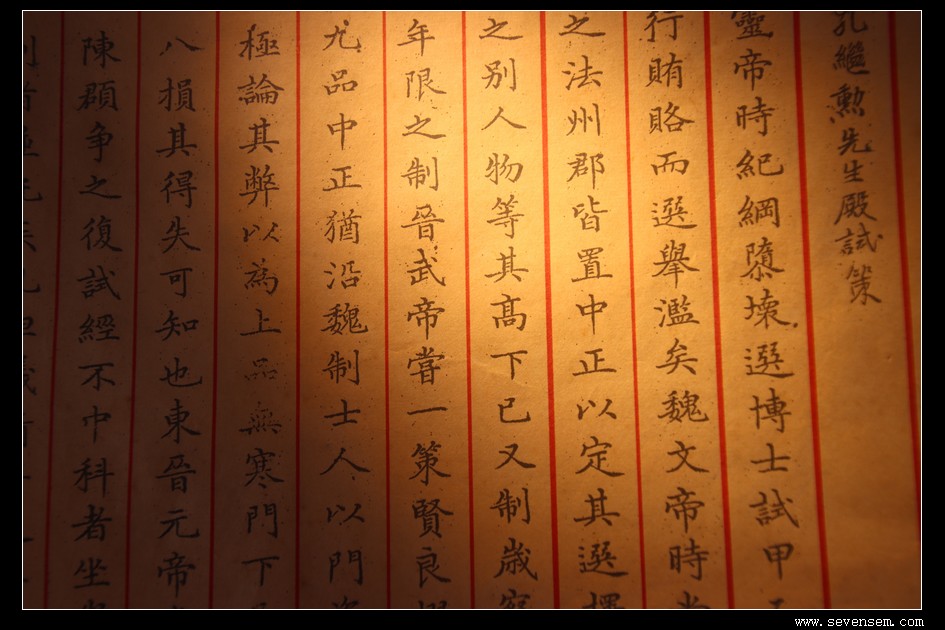 孔繼勲先生殿試策
靈帝時紀綱隳壞選博士試甲
行賄賂而選舉濫矣魏文帝時
之法州郡皆置中正以定其選擇
之別人物等其高下已又制歲
年限之制晉武帝嘗一策賢良
尤品中正猶沿魏制士人以門
極論其弊以為上品無寒門下
八損其得失可知也東晉元帝
陳頵爭之復試經不中科者坐
www.sevensem.com